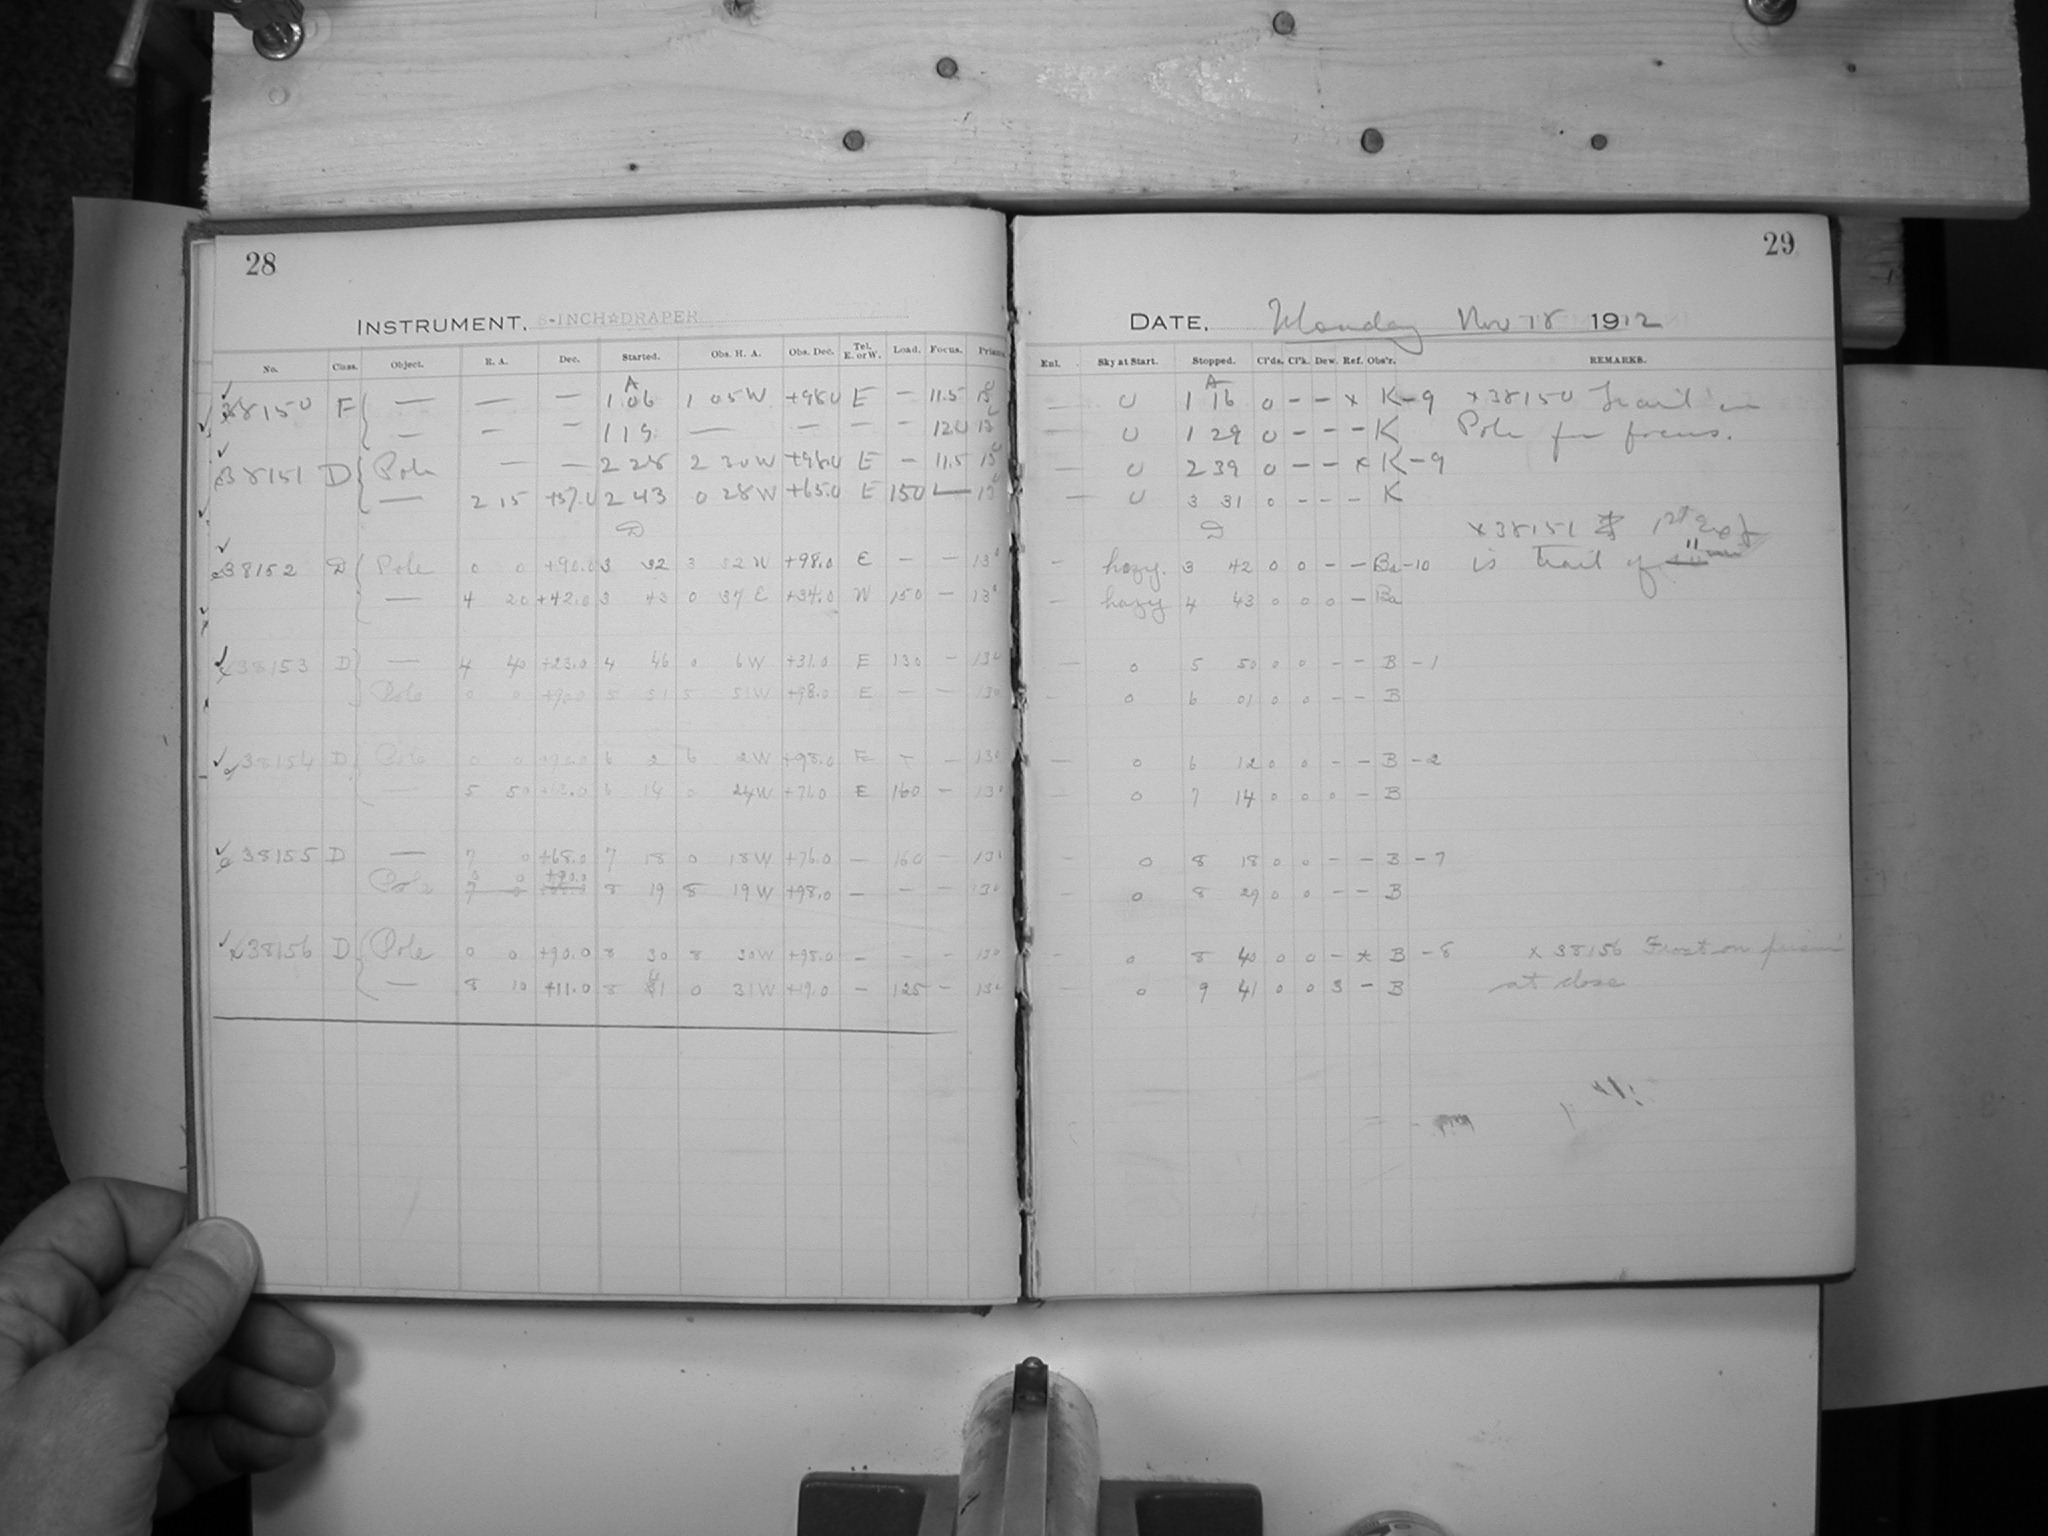 28
29
INSTRUMENT. 8-INCH DRAPER
DATE. Monday Nov 18 1912
No. Class. Object. R. A. Dec. Started. Obs. H. A. Obs. Dec. Tel. E. or W. Load. Focus. Prism.
Enl. Sky at Start. Stopped. Cl'ds. Cl'k. Dew. Ref. Obs'r. REMARKS.
A A
38150 F — — — 1 06 1 05 W +98.0 E — 11.5 — 0 1 16 0 – – x K-9 x 38150 Trail in
— — — 1 19 — — — — 12.0 — 0 1 29 0 – – – K Pole for focus.
38151 D Pole — — 2 28 2 30 W +98.0 E — 11.5 — 0 2 39 0 – – x K-9
— 2 15 +57.0 2 43 0 28 W +65.0 E 150 — — 0 3 31 0 – – – K
D D x 38151 1st Exp
38152 D Pole 0 0 +90.0 3 32 3 32 W +98.0 E — — 13 — hazy. 3 42 0 0 – – Ba-10 is trail of 11
— 4 20 +42.0 3 43 0 37 E +34.0 W 150 — 13 — hazy 4 43 0 0 0 – Ba
x 38153 D — 4 40 +23.0 4 46 0 6 W +31.0 E 130 — 13 — 0 5 50 0 0 – – B -1
Pole 0 0 +90.0 5 51 5 51 W +98.0 E — — 13 — 0 6 01 0 0 – – B
38154 D Pole 0 0 +90.0 6 2 6 2 W +98.0 E — — 13 — 0 6 12 0 0 – – B -2
— 5 50 6 14 0 24 W +76.0 E 160 — 13 — 0 7 14 0 0 0 – B
38155 D — 7 0 +68.0 7 18 0 18 W +76.0 — 160 — 13 — 0 8 18 0 0 – – B -7
0 0 +90.0
Pole 7 0 8 19 8 19 W +98.0 — — — 13 — 0 8 29 0 0 – – B
x 38156 D Pole 0 0 +90.0 8 30 8 30 W +98.0 — — — 13 — 0 8 40 0 0 – x B -8 x 38156 Frost on prism
— 8 10 +11.0 8 41 0 31 W +19.0 — 125 — 13 — 0 9 41 0 0 3 – B at close